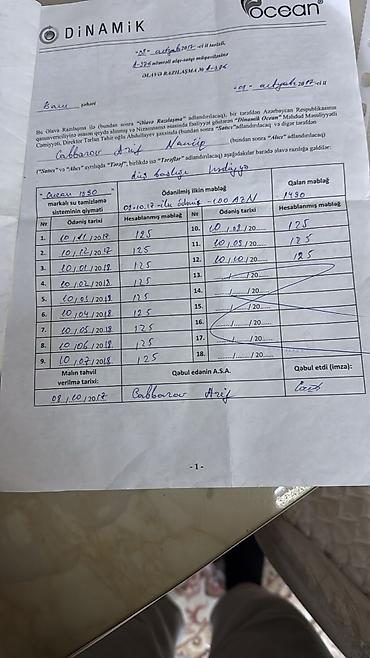 DiNAMiK
ocean®
2017-ci il tarixli,
nömrəli alqı-satqı müqaviləsinə
ƏLAVƏ RAZILAŞMA № A-376
2017-ci il
Bakı şəhəri
Bu Əlavə Razılaşma ilə (bundan sonra "Əlavə Razılaşma" adlandırılacaq), bir tərəfdən Azərbaycan Respublikasının
qanunvericiliyinə əsasən qeydə alınmış və Nizamnamə əsasında fəaliyyət göstərən "Dinamik Ocean" Məhdud Məsuliyyətli
Cəmiyyəti, Direktor Tərlan Tahir oğlu Abdullayev şəxsində (bundan sonra "Satıcı" adlandırılacaq) və digər tərəfdən
Cabbarov Arif (bundan sonra "Alıcı" adlandırılacaq)
("Satıcı" və "Alıcı" ayrılıqda "Tərəf", birlikdə isə "Tərəflər" adlandırılacaq) aşağıdakılar barədə əlavə razılığa gəldilər:
duş başlığı hədiyyə
"Ocean 1590"
markalı su təmizləmə
sisteminin qiyməti
Ödənilmiş ilkin məbləğ
09.10.17-ilk ödəniş -100 AZN
Qalan məbləğ
1490
№ Ödəniş tarixi Hesablanmış məbləğ № Ödəniş tarixi Hesablanmış məbləğ
1. 10/11/2017 125 10. 10/08/20 125
2. 10/12/2017 125 11. 10/09/20 125
3. 10/01/2018 125 12. 10/10/20 125
4. 10/02/2018 125 13. /20
5. 10/03/2018 125 14. /20
6. 10/04/2018 125 15. /20
7. 10/05/2018 125 16. /20
8. 10/06/2018 125 17. /20
9. 10/07/2018 125 18. /20
Malın təhvil
verilmə tarixi:
Qəbul edənin A.S.A.
Qəbul etdi (imza):
09/10/2017 Cabbarov Arif
- 1 -